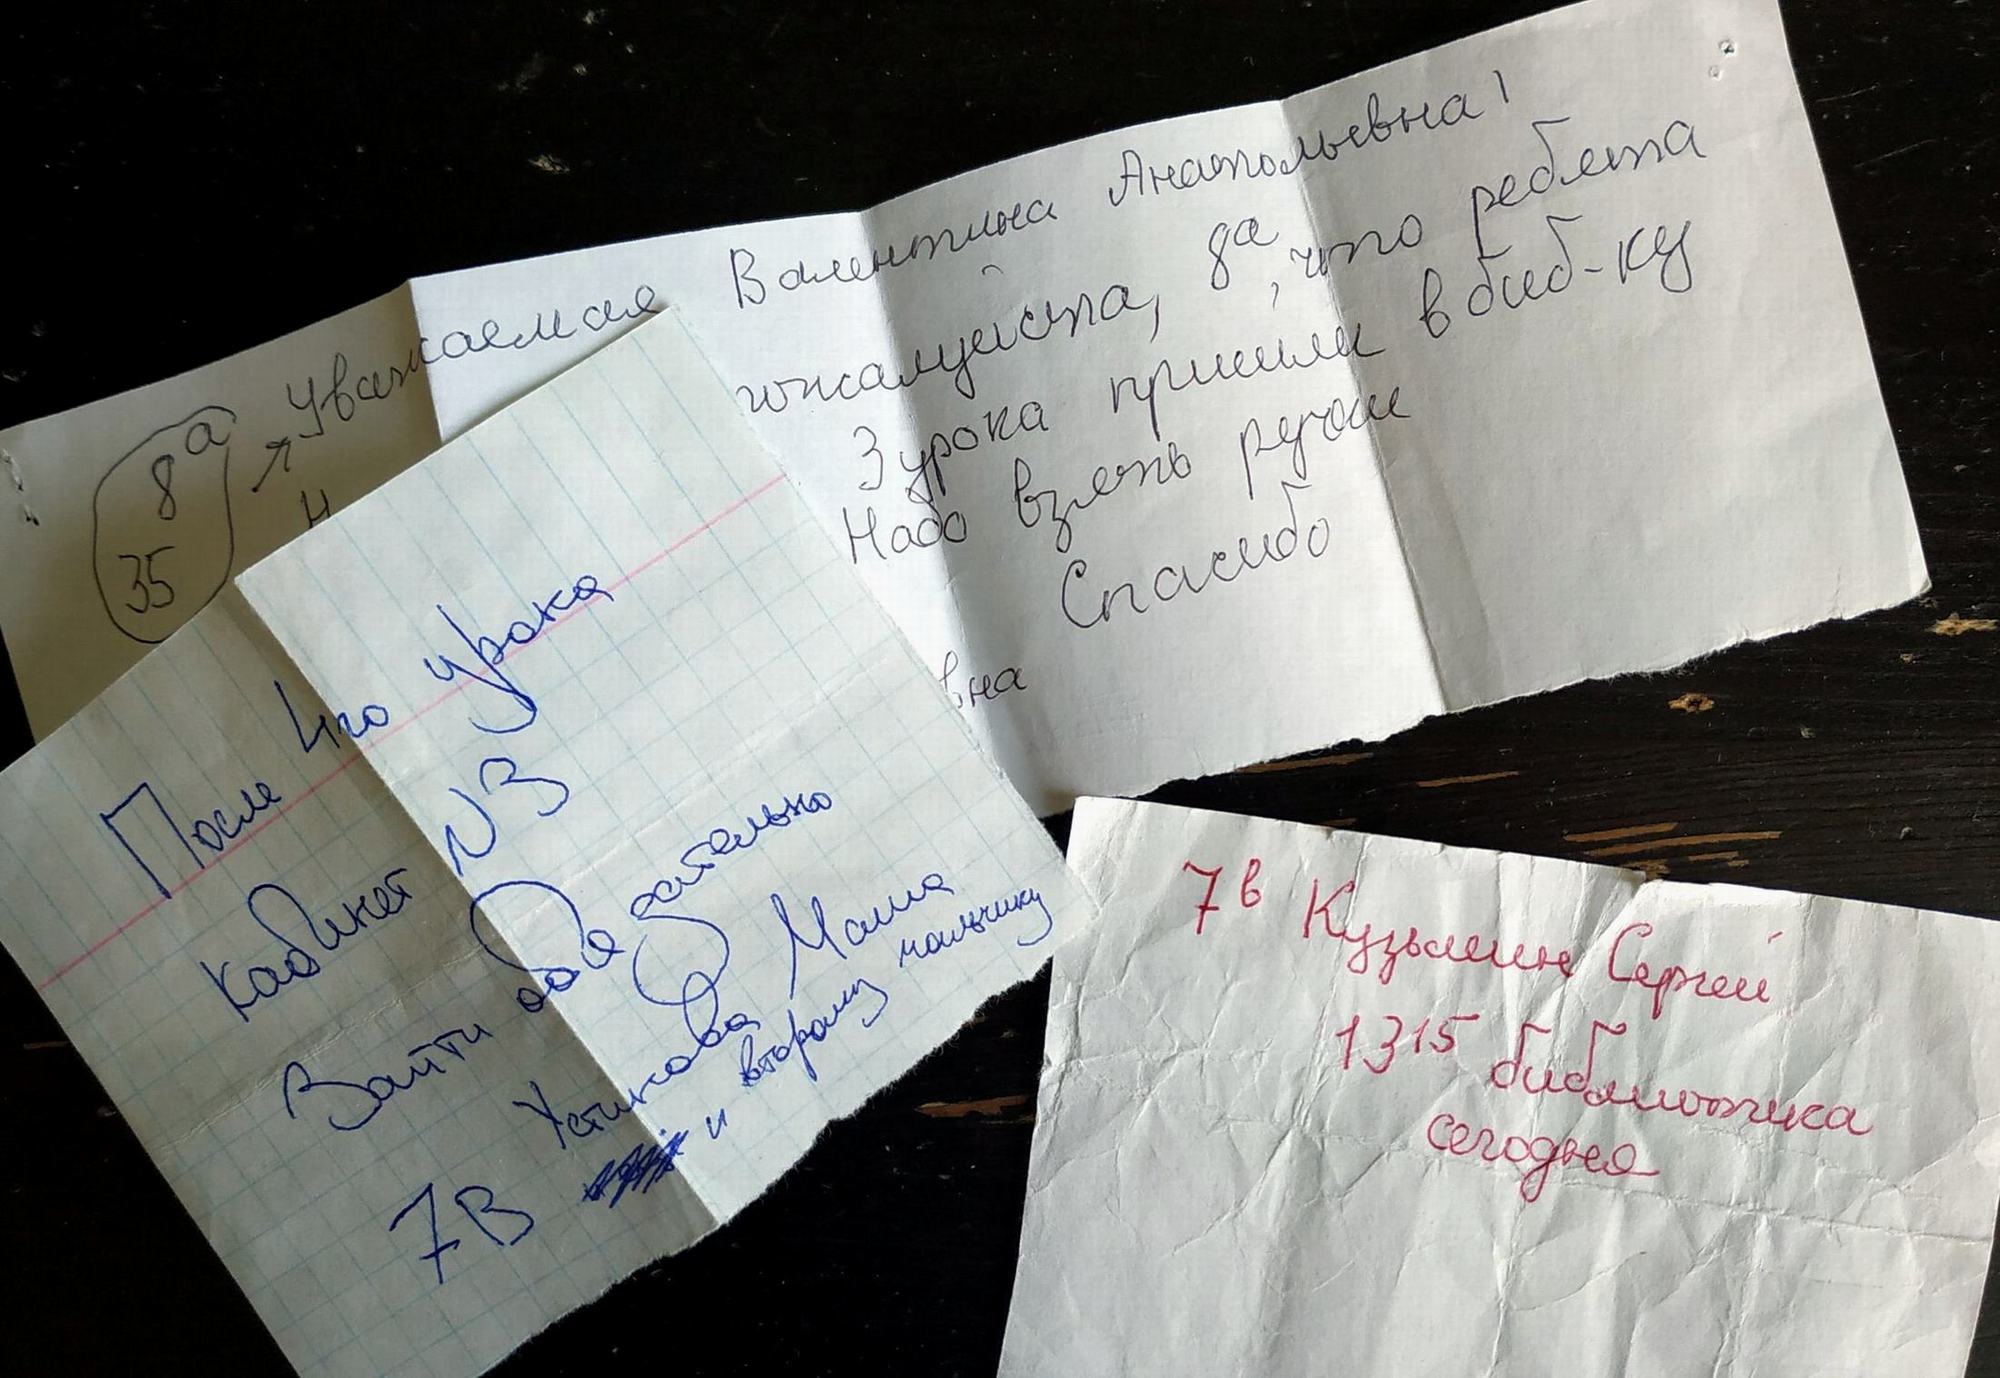 8а
35
Уважаемая Валентина Анатольевна!
Н
пожалуйста, 8а, что ребята
3 урока пришли в биб-ку
Надо взять ручки
Спасибо
вна
После 4го урока
кабинет N3
Зайти обязательно
Устинова Маша
и второму мальчику
7В
7в Кузьмин Сергей
13 15 библиотека
сегодня